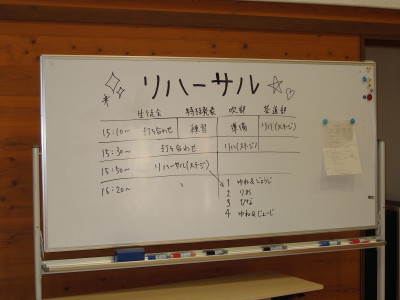 リハーサル
生徒会 特技発表 吹部 茶道部
15:10〜 打ち合わせ 練習 準備 リハ(ステージ)
15:30〜 打ち合わせ リハ(ステージ)
15:50〜 リハーサル(ステージ)
16:20〜
1 ゆね&じょうじ
2 りお
3 ひな
4 ゆね&じょーじ